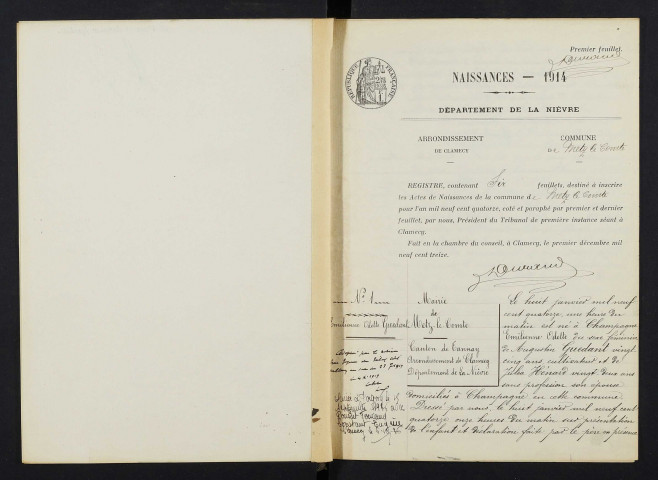 Premier feuillet.
RÉPUBLIQUE FRANÇAISE
NAISSANCES — 1914
DÉPARTEMENT DE LA NIÈVRE
ARRONDISSEMENT
DE CLAMECY
COMMUNE
de Metz le Comte
REGISTRE, contenant Six feuillets, destiné à inscrire
les Actes de Naissances de la commune de Metz le Comte
pour l'an mil neuf cent quatorze, coté et paraphé par premier et dernier
feuillet, par nous, Président du Tribunal de première instance séant à
Clamecy.
Fait en la chambre du conseil, à Clamecy, le premier décembre mil
neuf cent treize.
N° 1
Emilienne Odette Guedant
Mairie
de
Metz le Comte
Canton de Tannay
Arrondissement de Clamecy
Département de la Nièvre
Le huit janvier mil neuf
cent quatorze, une heure du
matin est né à Champagne
Emilienne Odette du sexe féminin
de Augustin Guedant vingt
cinq ans cultivateur et de
Julia Hénard vingt deux ans
sans profession son épouse
domiciliés à Champagne en cette commune
Dressé par nous, le huit janvier mil neuf cent
quatorze onze heures du matin sur présentation
de l'enfant et déclaration faite par le père en présence